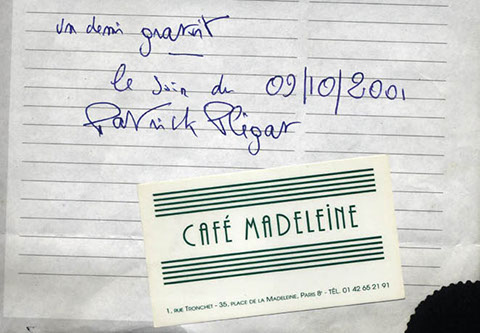 un demi gratuit
le soir du 09/10/2001
Patrick Plégar
CAFÉ MADELEINE
1, RUE TRONCHET - 35, PLACE DE LA MADELEINE, PARIS 8e - TÉL. 01 42 65 21 91